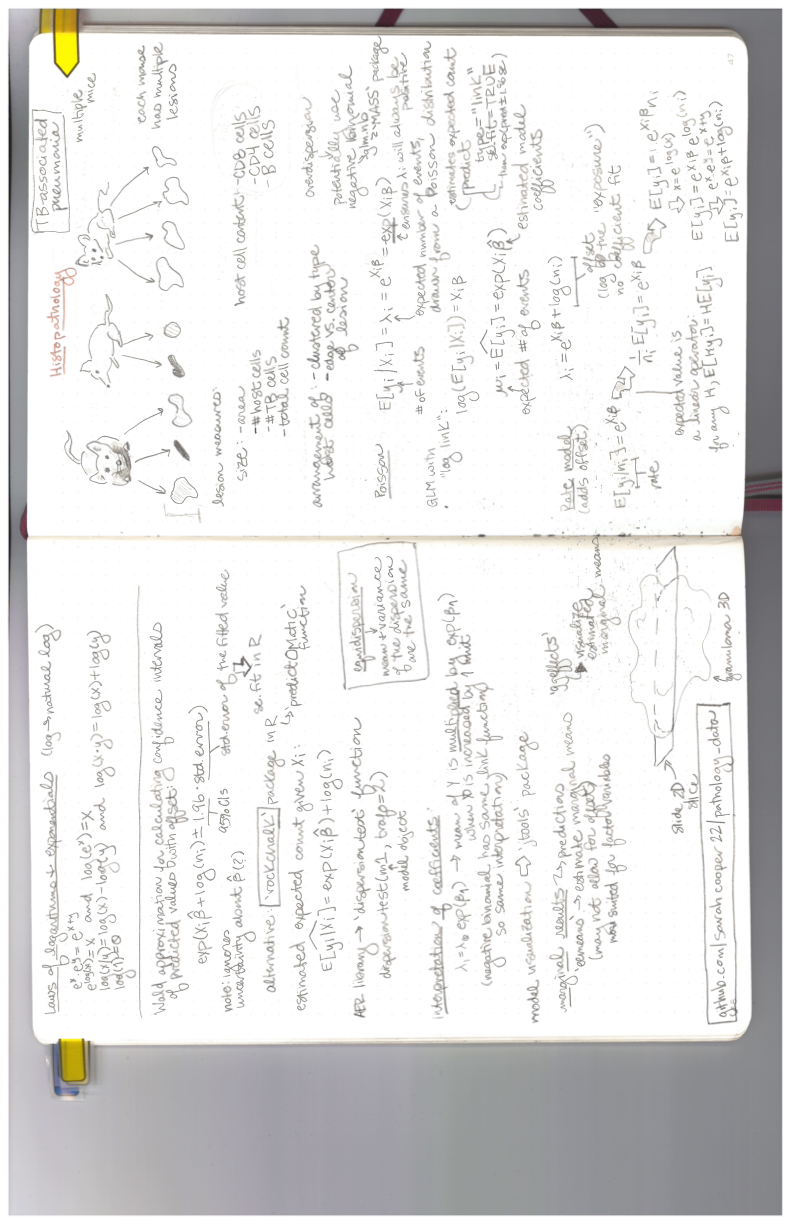 Laws of logarithms + exponentials (log → natural log)
e^x · e^y = e^(x+y)
e^log(x) = x and log(e^x) = x
log(x/y) = log(x) - log(y) and log(x·y) = log(x) + log(y)
log(1) = 0
Wald approximation for calculating confidence intervals
of predicted values (with offset):
exp(Xiβ̂ + log(ni) ± 1.96 · std.error)
95% CIs
std.error of the fitted value
se.fit in R
note: ignores
uncertainty about β̂(?)
alternative: 'rockchalk' package in R
↳ predictOMatic
function
estimated expected count given Xi:
E[yi|Xi] = exp(Xiβ̂) + log(ni)
AER library → 'dispersiontest' function
dispersiontest(m1, trafo=2)
model object
equidispersion
mean + variance
of the dispersion
are the same
interpretation of coefficients:
λi = λ0 exp(β1) → mean of Y is multiplied by exp(β1)
when X is increased by 1 unit
(negative binomial has same link function
so same interpretation)
model visualization ⇨ 'jtools' package
marginal results → predictions
'emmeans' → estimate marginal means
(may not allow for offset)
more suited for factor variables
'ggeffects'
visualize
estimated
marginal means
slide 2D
slice
granuloma 3D
github.com/sarah cooper 22/pathology-data
Histopathology
TB-associated
pneumonia
multiple
mice
each mouse
has multiple
lesions
lesion measures:
size: - area
- # host cells
- # TB cells
- total cell count
host cell content: - CD8 cells
- CD4 cells
- B cells
arrangement of: - clustered by type
host cells - edge vs. center
of lesion
overdispersion
potentially use
negative binomial
'glm.nb'
'MASS' package
Poisson
E[yi|Xi] = λi = e^(Xiβ) = exp(Xiβ)
ensures λi will always be
positive
# of events
expected number of events,
drawn from a Poisson distribution
GLM with
"log link":
log(E[yi|Xi]) = Xiβ
estimates expected count
predict
type = "link"
se.fit = TRUE
μi = E[yi] = exp(Xiβ̂)
expected # of events
estimated model
coefficients
Rate model
(adds offset)
λi = e^(Xiβ + log(ni))
offset
(log of the "exposure")
no coefficient fit
E[yi/ni] = e^(Xiβ) ⇨ 1/ni E[yi] = e^(Xiβ) ⇨ E[yi] = e^(Xiβ) ni
rate
x = e^log(x)
E[yi] = e^(Xiβ) e^log(ni)
e^x e^y = e^(x+y)
E[yi] = e^(Xiβ + log(ni))
expected value is
a linear operator:
for any H, E[Hyi] = HE[yi]
47